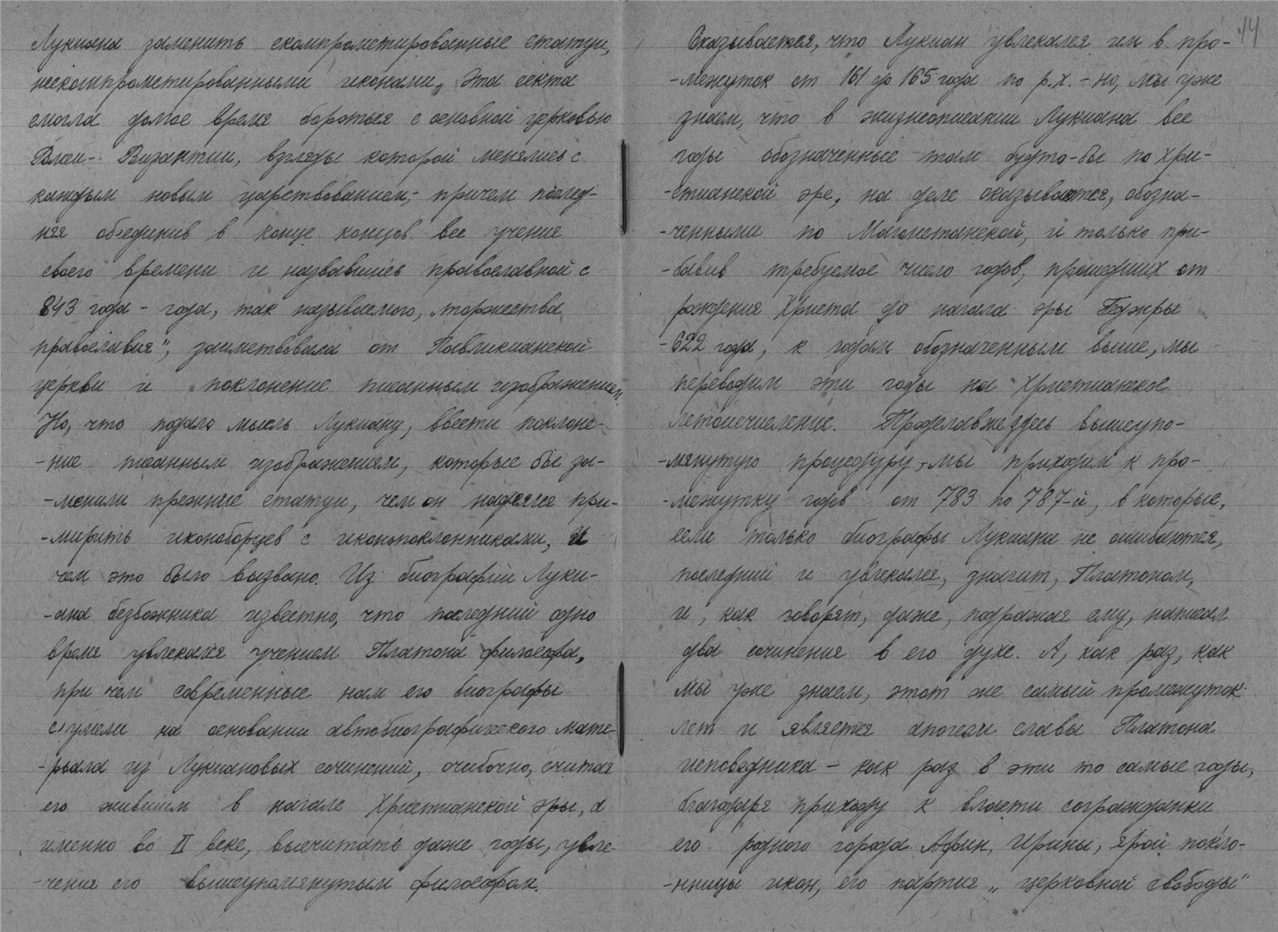 Лукиана заменить скомпрометированные статуи,
нескомпрометированными иконами. Эта секта
смогла долгое время бороться с основной церковью
Византии, взгляды которой менялись с
каждым новым царствованием, причем послед-
няя объединив в конце концов все учения
своего времени и назвавшись православной с
843 года - года, так называемого, "торжества
православия", заимствовала от Павликианской
церкви и поклонение писанным изображениям.
Но, что подало мысль Лукиану, ввести поклоне-
-ние писанным изображениям, которые бы за-
-менили прежние статуи, чем он надеялся при-
-мирить иконоборцев с иконопоклонниками, и
чем это было вызвано. Из биографии Луки-
-ана безбожника известно, что последний одно
время увлекался учением Платона философа,
при чем современные нам его биографы
сумели на основании автобиографического мате-
-рьяла из Лукиановых сочинений, ошибочно, считая
его жившим в начале Христианской эры, а
именно во II веке, высчитать даже годы, увле-
-чения его вышеупомянутым философом.
14
Оказывается, что Лукиан увлекался им в про-
-межуток от 161 до 165 года по р.х. - но, мы уже
знаем, что в жизнеописании Лукиана все
годы обозначенные там будто-бы по Хри-
-стианской эре, на деле оказываются, обозна-
-ченными по Магометанской, и только при-
-бавив требуемое число годов, прошедших от
рождения Христа до начала эры Гыжры
-622 года, к годам обозначенным выше, мы
переводим эти годы на Христианское
летоисчисление. Проделав же здесь вышеупо-
-мянутую процедуру, мы приходим к про-
-межутку годов от 783 по 787-й, в которые,
если только биографы Лукиана не ошибаются,
последний и увлекался, значит, Платоном,
и, как говорят, даже, подражая ему, написал
два сочинения в его духе. А, как раз, как
мы уже знаем, этот же самый промежуток
лет и является апогеем славы Платона
исповедника - как раз в эти то самые годы,
благодаря приходу к власти согражданки
его родного города Афин, Ирины, ярой покло-
-нницы икон, его партия „церковной свободы"